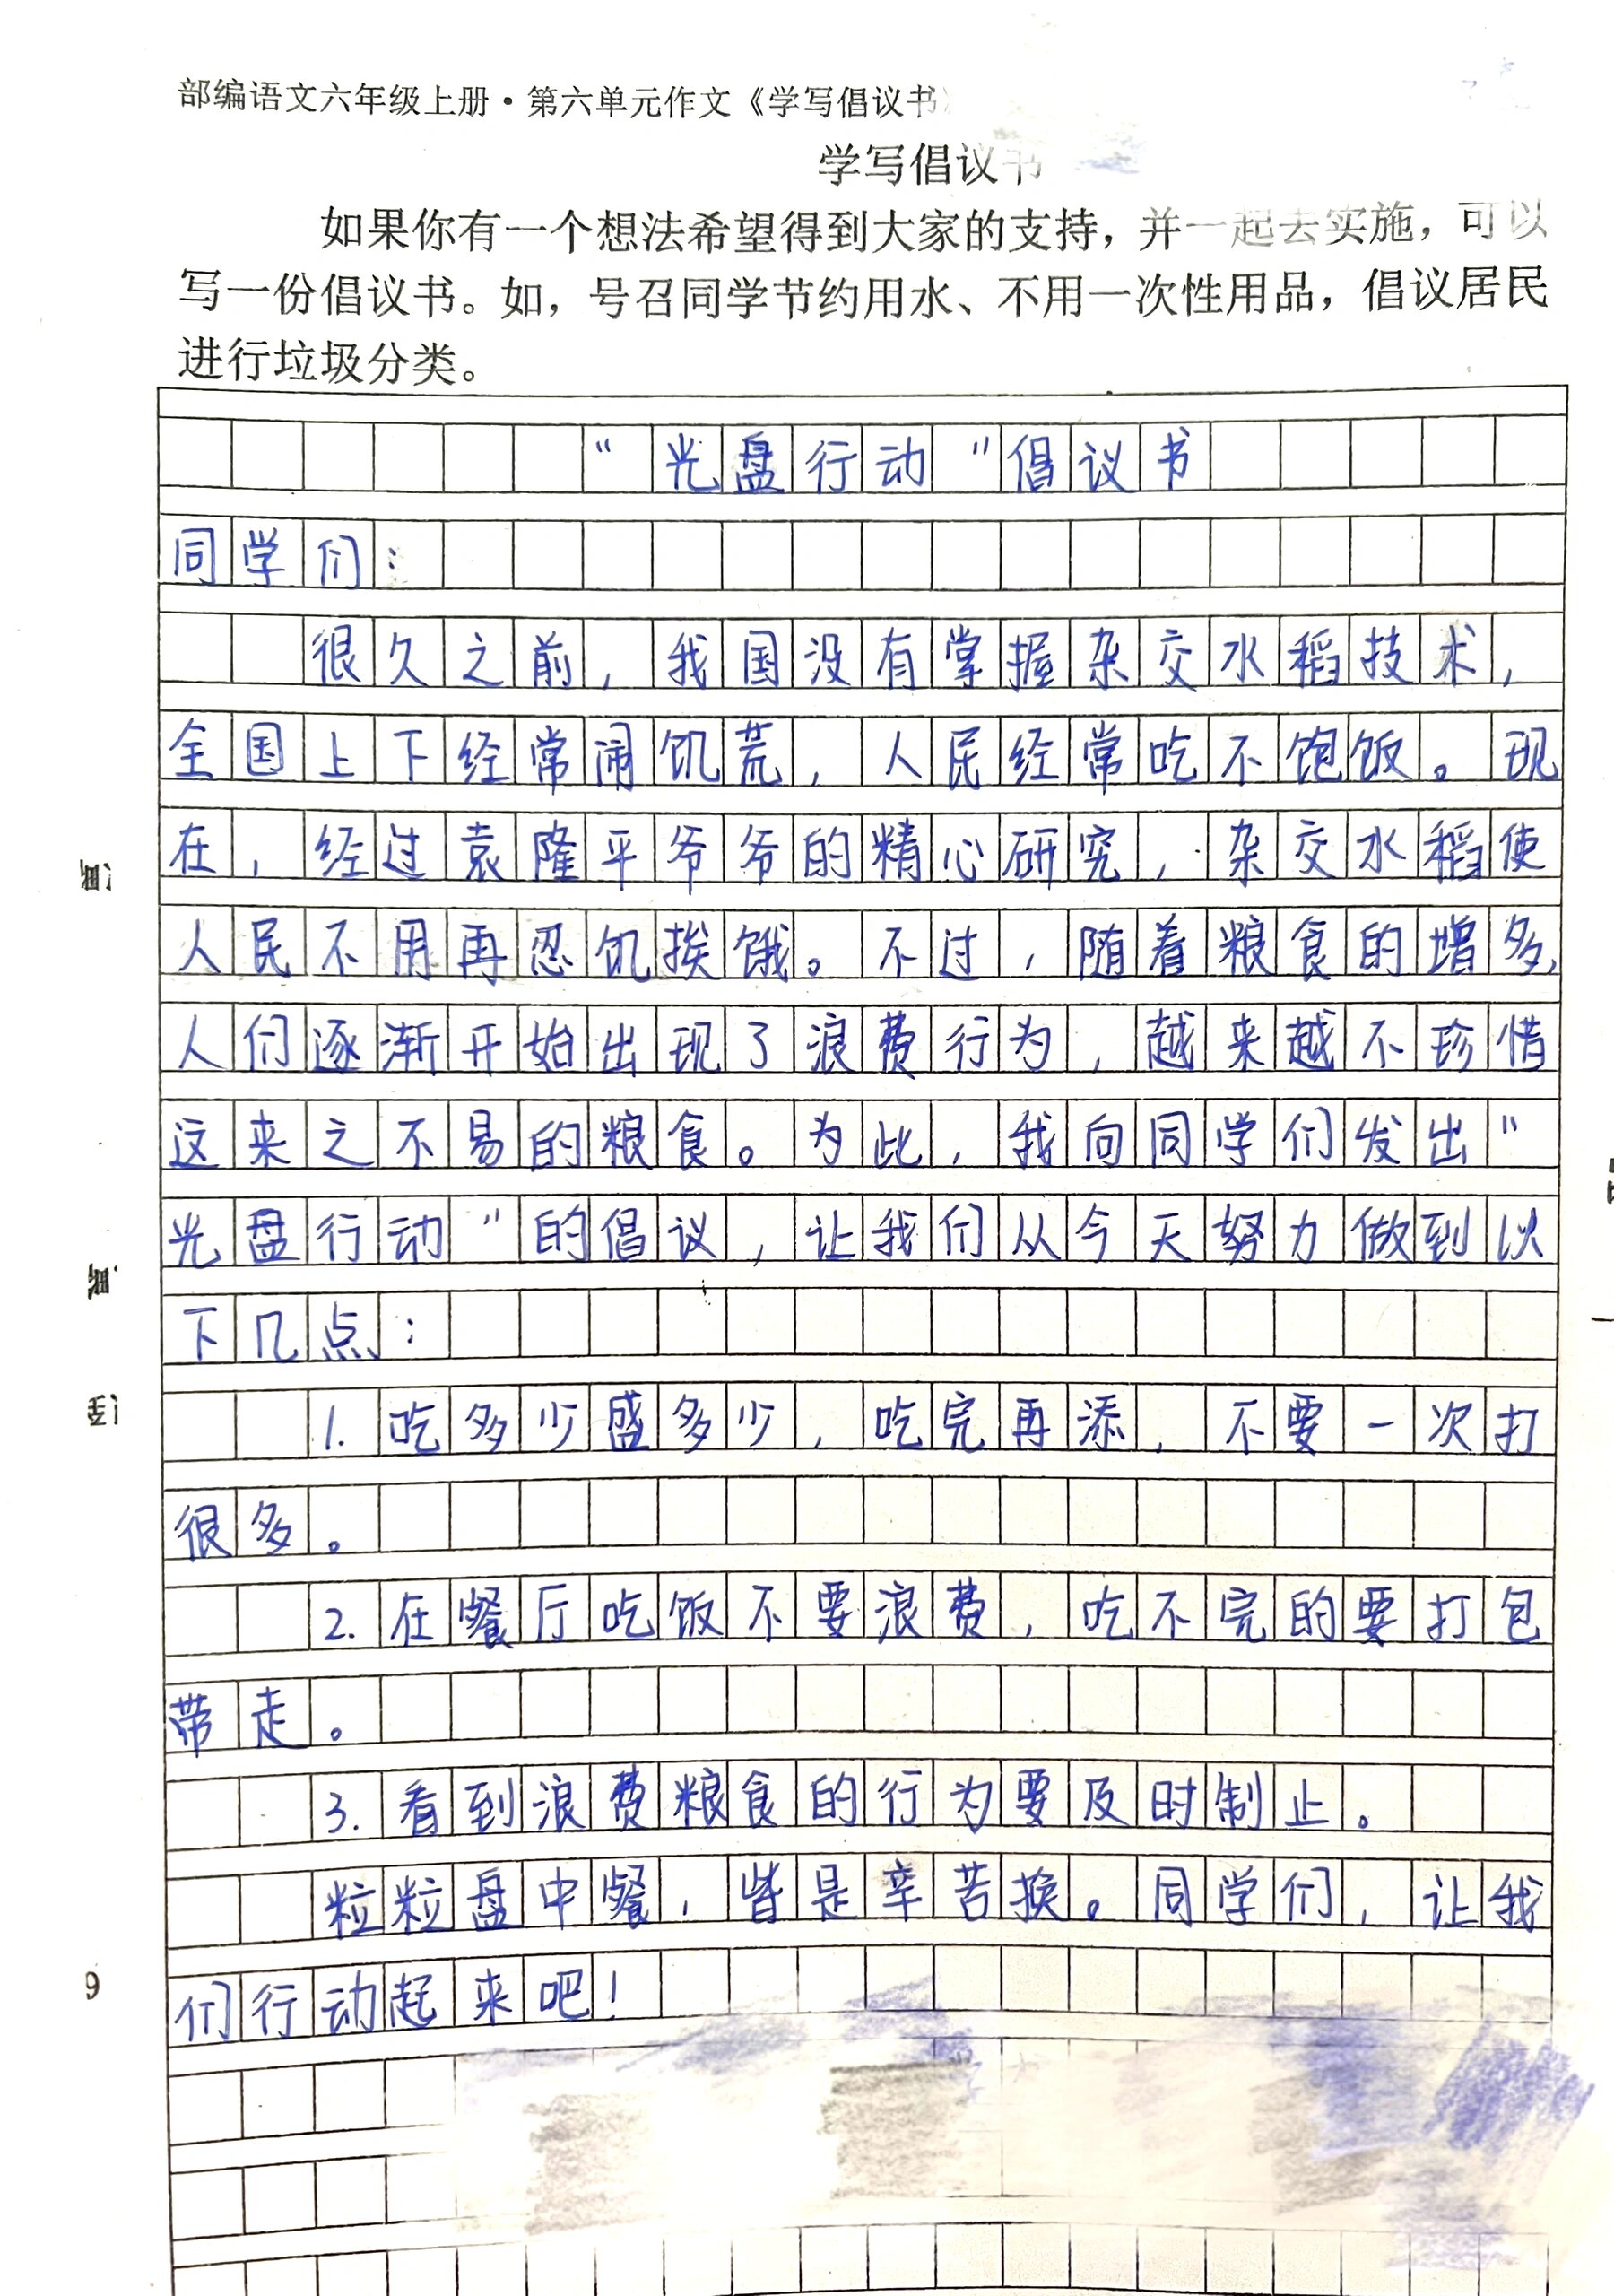 部编语文六年级上册·第六单元作文《学写倡议书》
学写倡议书
如果你有一个想法希望得到大家的支持，并一起去实施，可以
写一份倡议书。如，号召同学节约用水、不用一次性用品，倡议居民
进行垃圾分类。
“光盘行动”倡议书
同学们：
很久之前，我国没有掌握杂交水稻技术，
全国上下经常闹饥荒，人民经常吃不饱饭。现
在，经过袁隆平爷爷的精心研究，杂交水稻使
人民不用再忍饥挨饿。不过，随着粮食的增多，
人们逐渐开始出现了浪费行为，越来越不珍惜
这来之不易的粮食。为此，我向同学们发出“
光盘行动”的倡议，让我们从今天努力做到以
下几点：
1.吃多少盛多少，吃完再添，不要一次打
很多。
2.在餐厅吃饭不要浪费，吃不完的要打包
带走。
3.看到浪费粮食的行为要及时制止。
粒粒盘中餐，皆是辛苦换。同学们，让我
们行动起来吧！
9